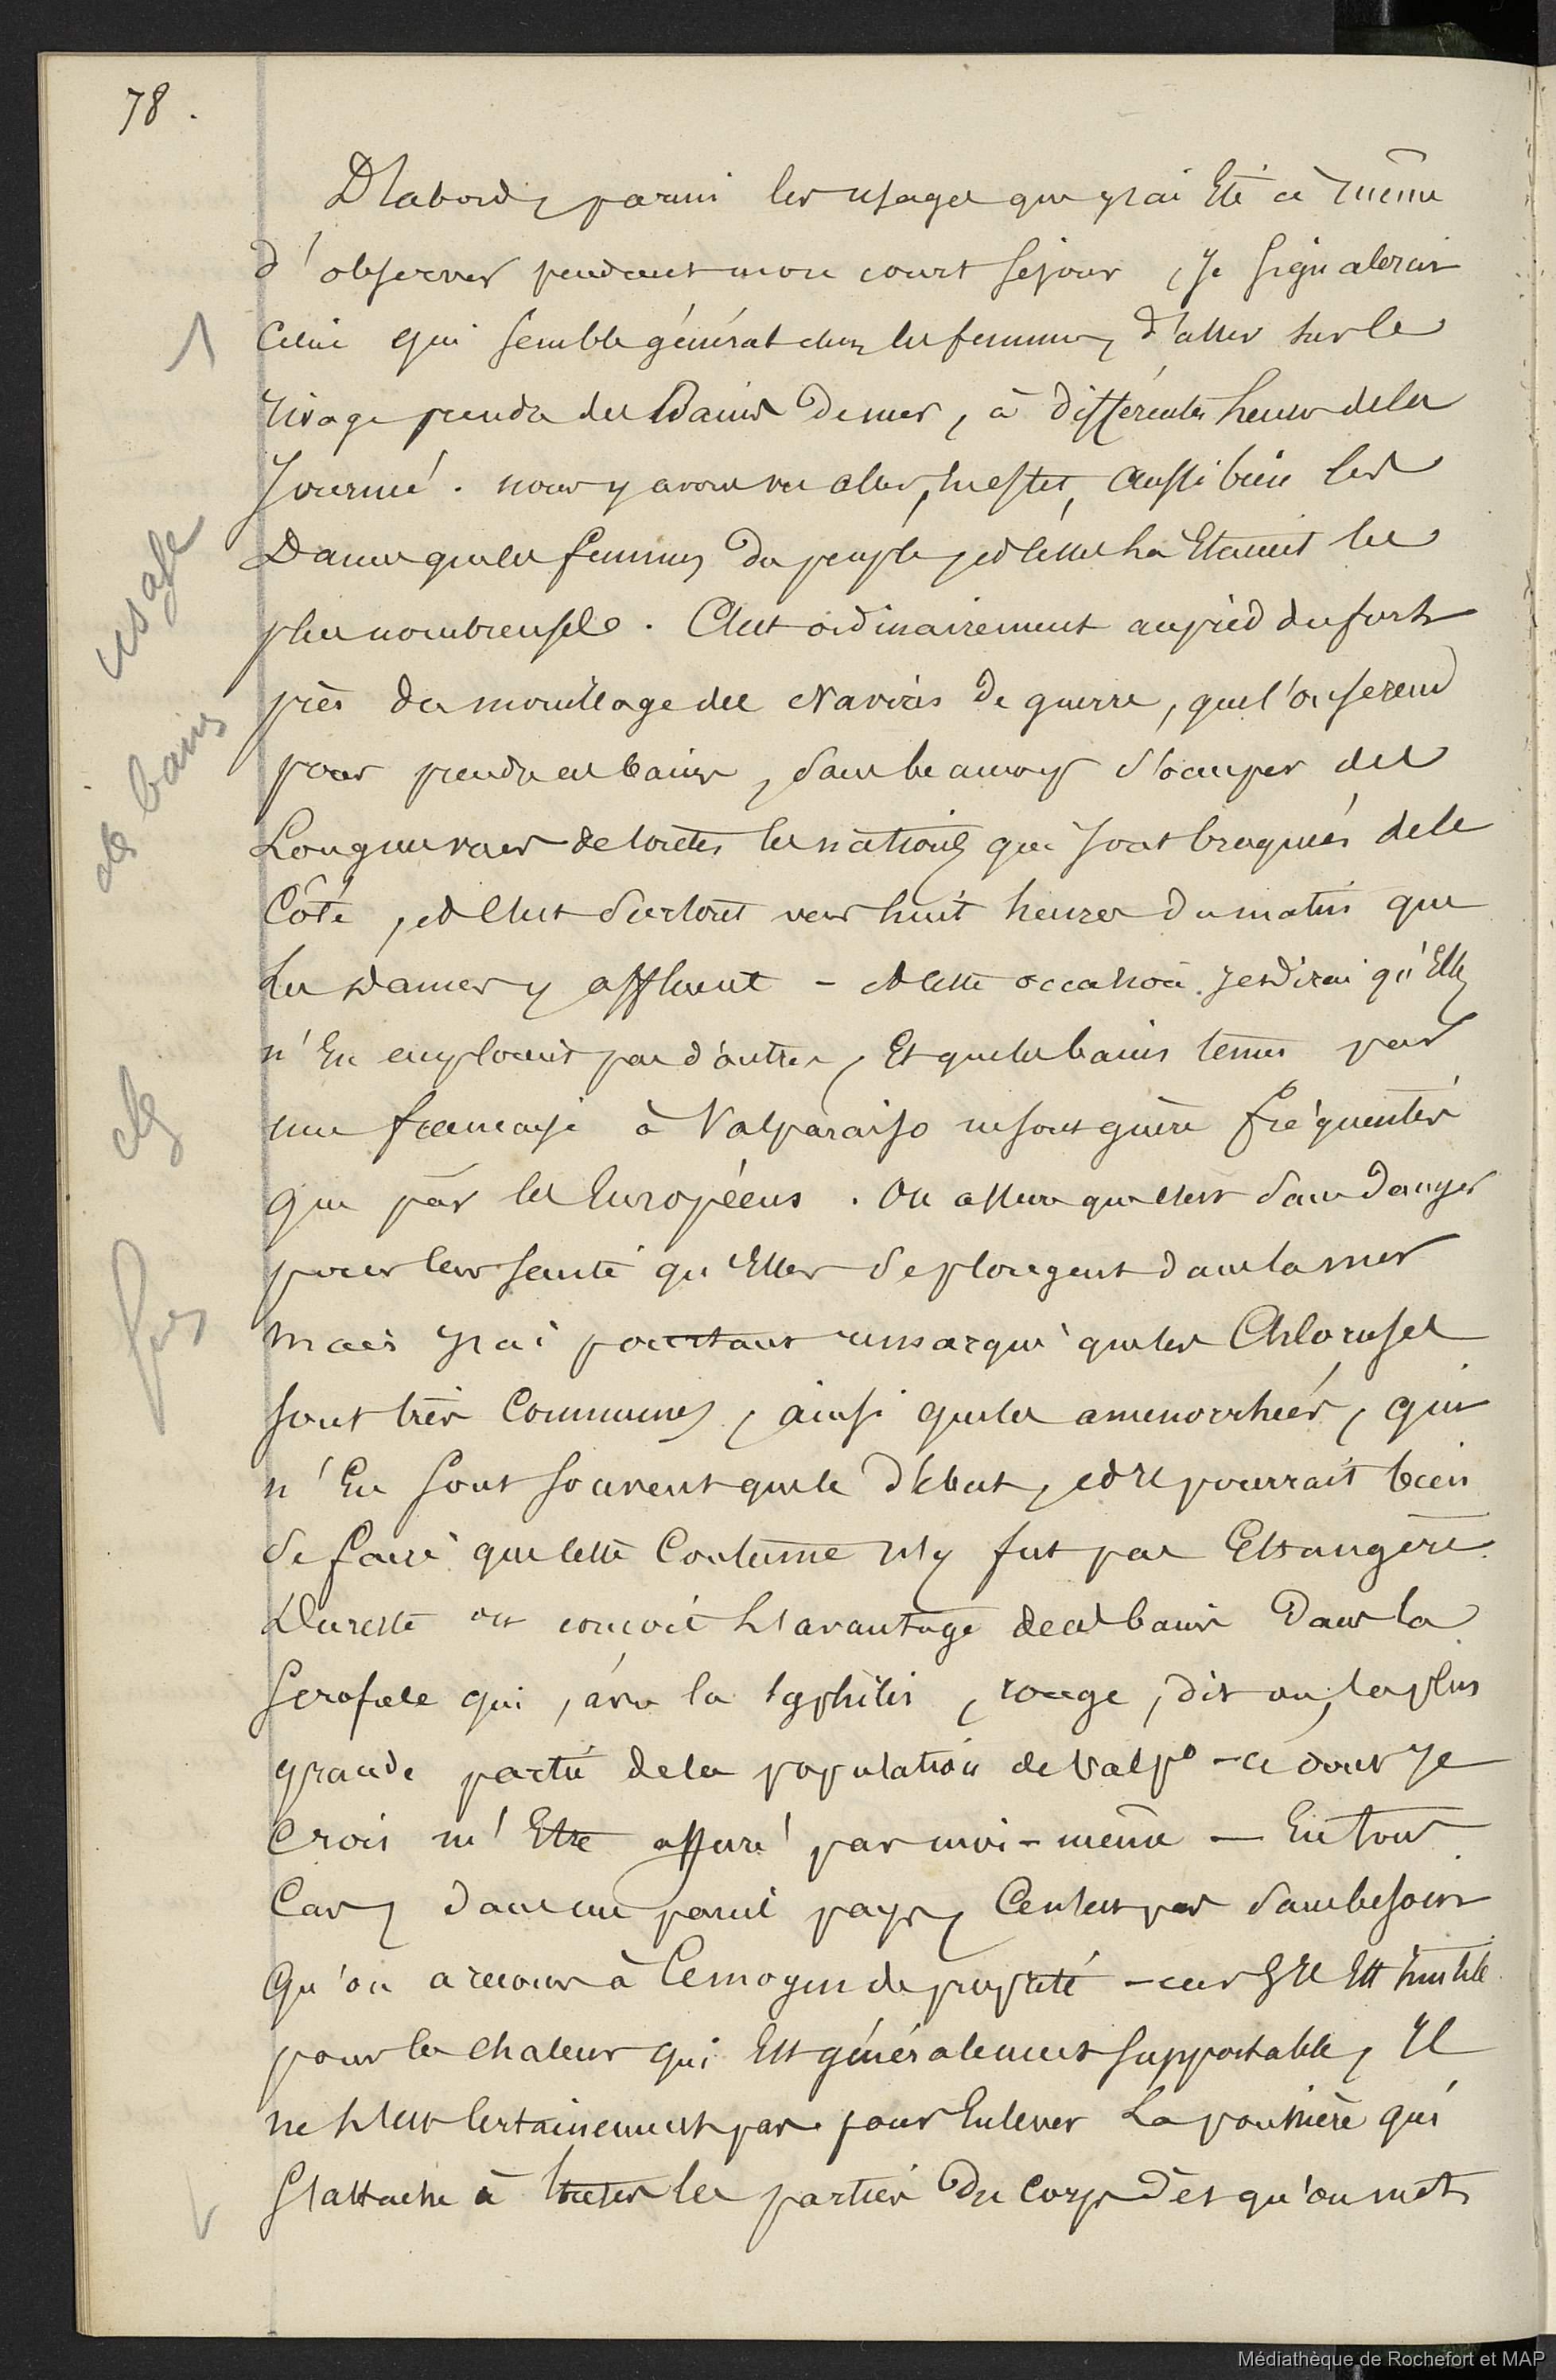 78.
D'abord, parmi les usages que j'ai été à même
d'observer pendant mon court séjour, je signalerai
celui qui semble général chez les femmes, d'aller sur le
rivage prendre des Bains de mer, à différentes heures de la
journée. nous y avons vu aller, aussi bien les
Dames que les femmes du peuple, et celles là étaient les
plus nombreuses. C'est ordinairement au pied du fort
près du mouillage des Navires de guerre, que l'on se rend
pour prendre ces bains, sans beaucoup s'occuper des
Longues vues de toutes les nations qui sont braquées de ce
Côté, et c'est surtout vers huit heures du matin que
les Dames y affluent - A cette occasion je dirai qu'Elles
n'En emploient pas d'autres, Et que les bains tenus par
une française à Valparaiso ne sont guère fréquentés
que par les Européens. On assure que c'est sans Danger
pour leur santé qu'Elles se plongent dans la mer
mais j'ai pourtant remarqué que les Chloroses
sont très Communes, ainsi que les amenorrhées, qui
n'En sont souvent que le Début, et il pourrait bien
se faire que cette Coutume n'y fut pas Etrangère.
Du reste on conçoit l'avantage de ces bains Dans la
scrofule qui, avec la syphilis, ronge, dit on, la plus
grande partie de la population de Valpo - ce dont je
Crois m'Etre assuré par moi-même - En tout
Cas, dans un pareil pays, Ce n'est pas sans besoin
Qu'on a recours à Ce moyen de propreté - car s'Il Est inutile
pour la chaleur qui Est généralement supportable, Il
ne l'est Certainement pas pour Enlever La poussière qui
s'attache à toutes les parties Du Corps Dès qu'on met
1
usage
des bains
chez
les